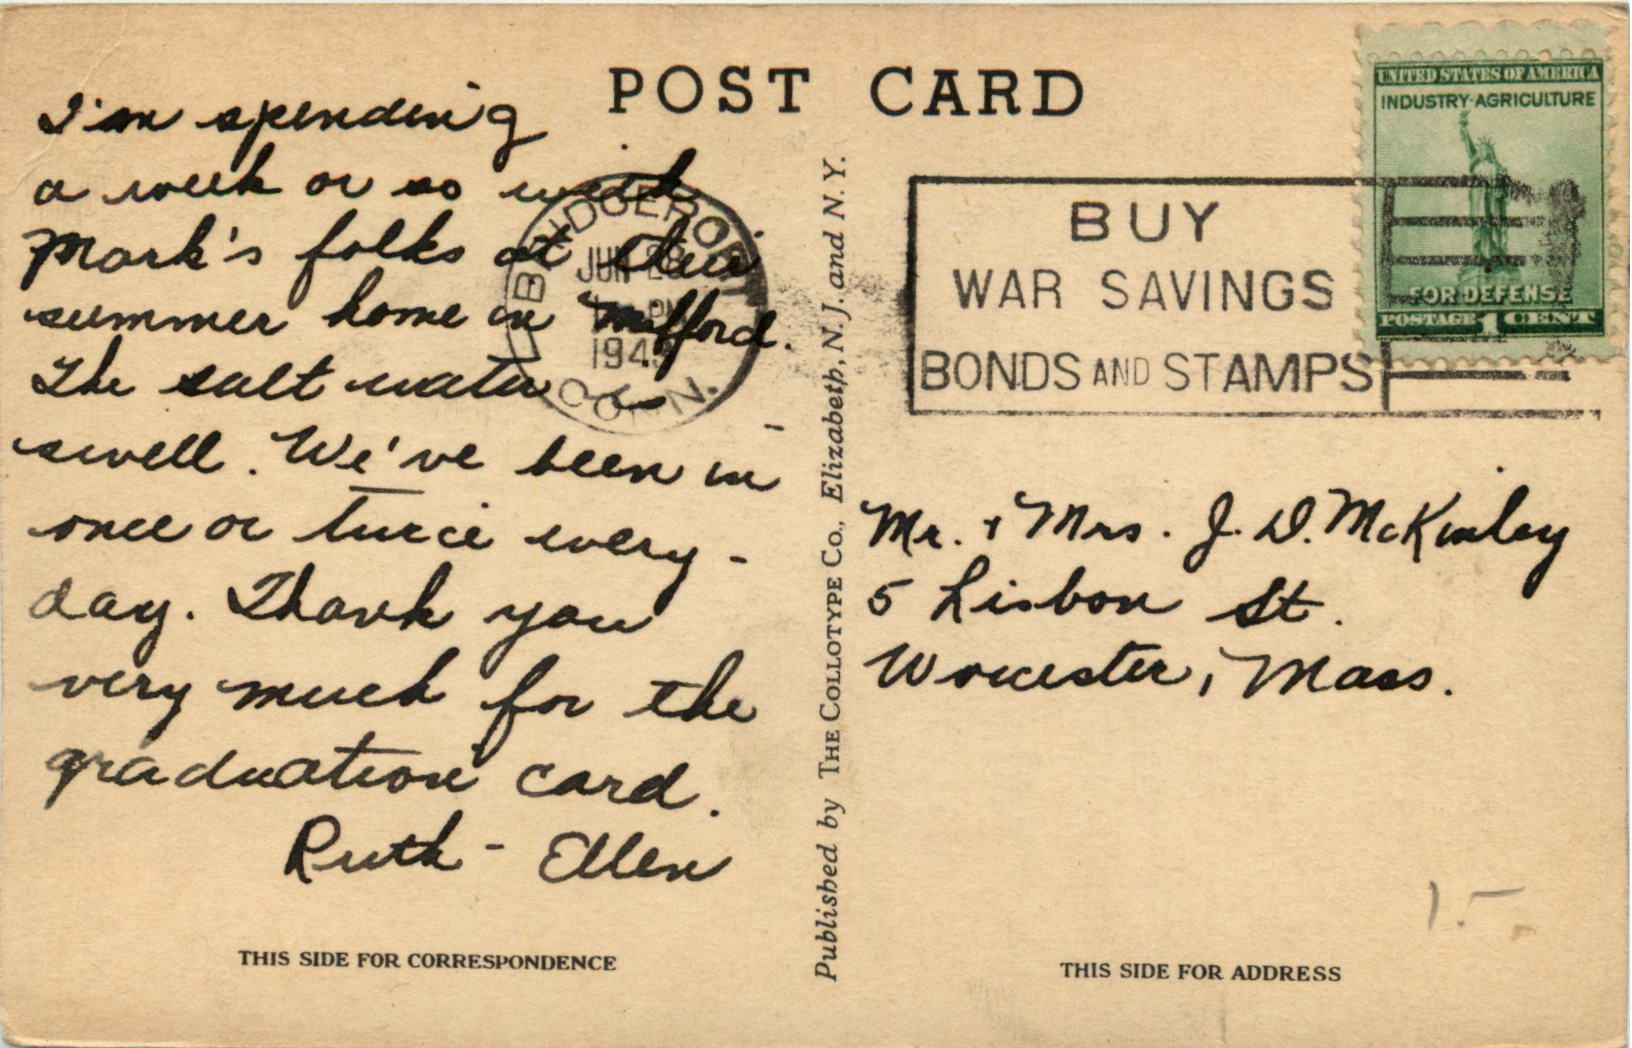 POST CARD
I'm spending
a week or so with
Mark's folks at their
summer home in Milford.
The salt water is
swell. We've been in
once or twice every-
day. Thank you
very much for the
graduation card.
Ruth-Ellen
THIS SIDE FOR CORRESPONDENCE
BRIDGEPORT
JUN 28
PM
194
CONN.
Published by THE COLLOTYPE Co., Elizabeth, N.J. and N.Y.
BUY
WAR SAVINGS
BONDS AND STAMPS
UNITED STATES OF AMERICA
INDUSTRY-AGRICULTURE
FOR DEFENSE
POSTAGE 1 CENT
Mr. & Mrs. J. D. McKinley
5 Lisbon St.
Worcester, Mass.
1.-
THIS SIDE FOR ADDRESS